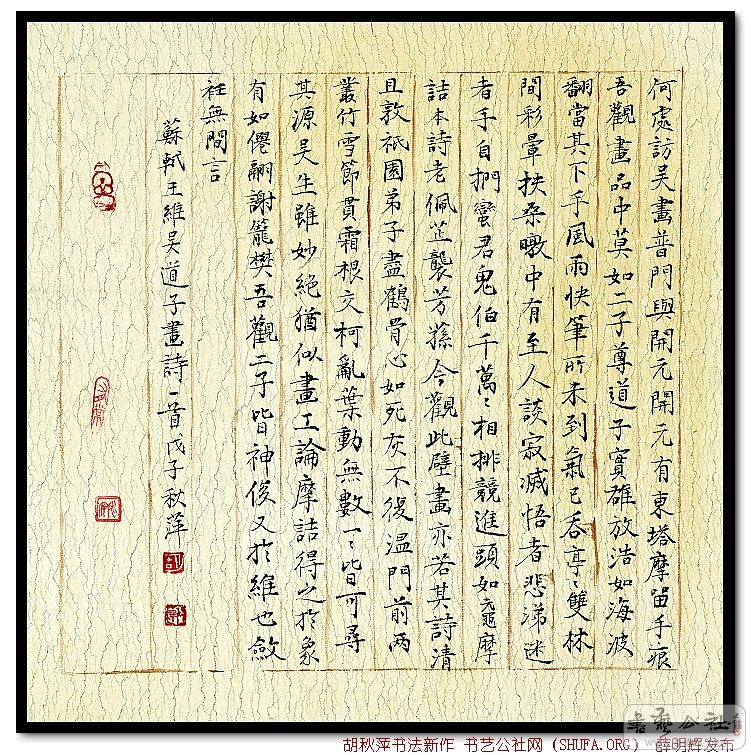 何處訪吳畫普門與開元開元有東塔摩留手痕
吾觀畫品中莫如二子尊道子實雄放浩如海波
翻當其下手風雨快筆所未到氣已吞亭〻雙林
間彩暈扶桑暾中有至人談寂滅悟者悲涕迷
者手自捫蠻君鬼伯千萬〻相排競進頭如黿摩
詰本詩老佩芷襲芳蓀今觀此壁畫亦若其詩清
且敦祇園弟子盡鶴骨心如死灰不復溫門前兩
叢竹雪節貫霜根交柯亂葉動無數一〻皆可尋
其源吳生雖妙絕猶似畫工論摩詰得之於象
有如僊翮謝籠樊吾觀二子皆神俊又於維也斂
衽無間言
蘇軾王維吳道子畫詩一首戊子秋萍
书艺公社
胡秋萍书法新作 书艺公社网 (SHUFA.ORG) 薛明辉发布